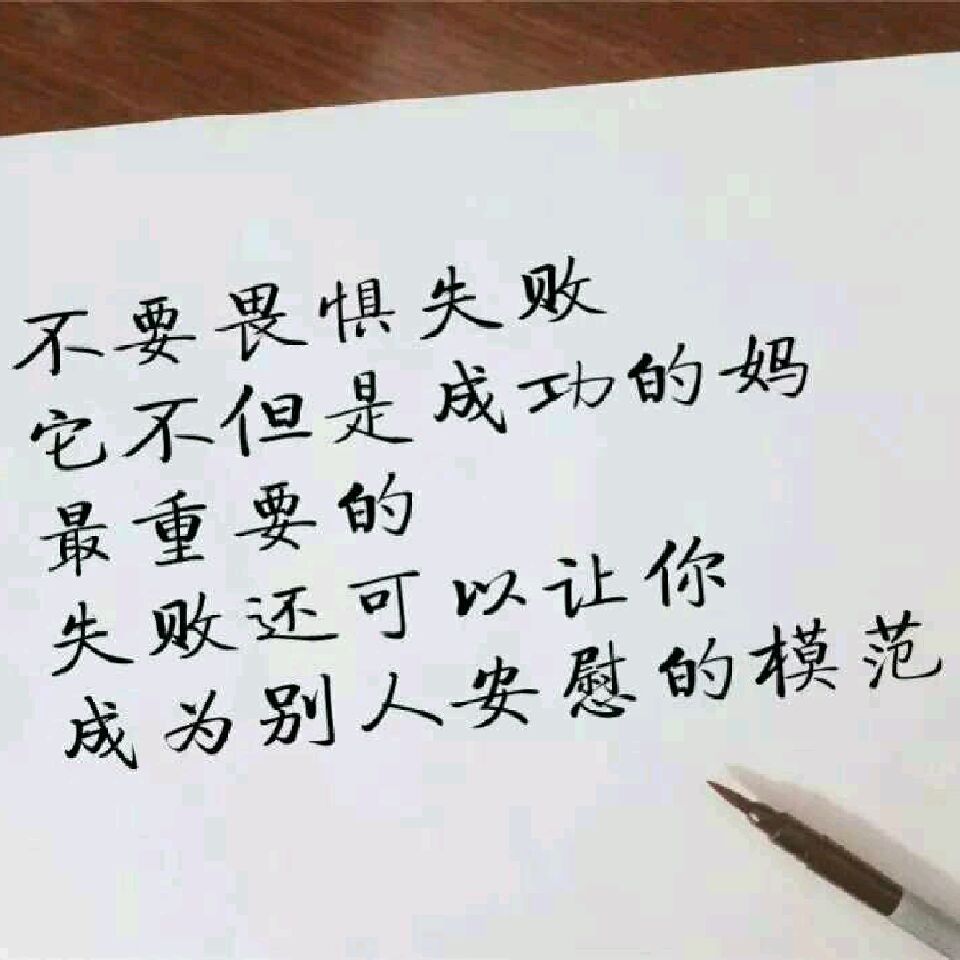 不要畏惧失败
它不但是成功的妈
最重要的
失败还可以让你
成为别人安慰的模范